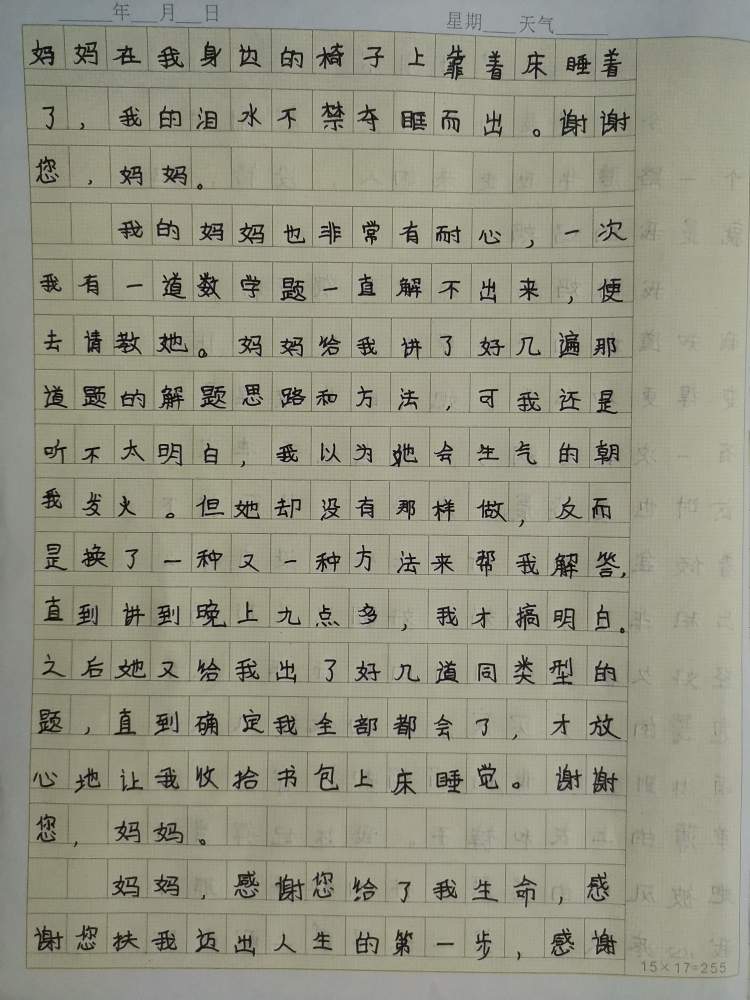 年 月 日 星期 天气
妈妈在我身边的椅子上靠着床睡着
了，我的泪水不禁夺眶而出。谢谢
您，妈妈。
我的妈妈也非常有耐心，一次
我有一道数学题一直解不出来，便
去请教她。妈妈给我讲了好几遍那
道题的解题思路和方法，可我还是
听不太明白，我以为她会生气的朝
我发火。但她却没有那样做，反而
是换了一种又一种方法来帮我解答，
直到讲到晚上九点多，我才搞明白。
之后她又给我出了好几道同类型的
题，直到确定我全部都会了，才放
心地让我收拾书包上床睡觉。谢谢
您，妈妈。
妈妈，感谢您给了我生命，感
谢您扶我迈出人生的第一步，感谢
15×17=255